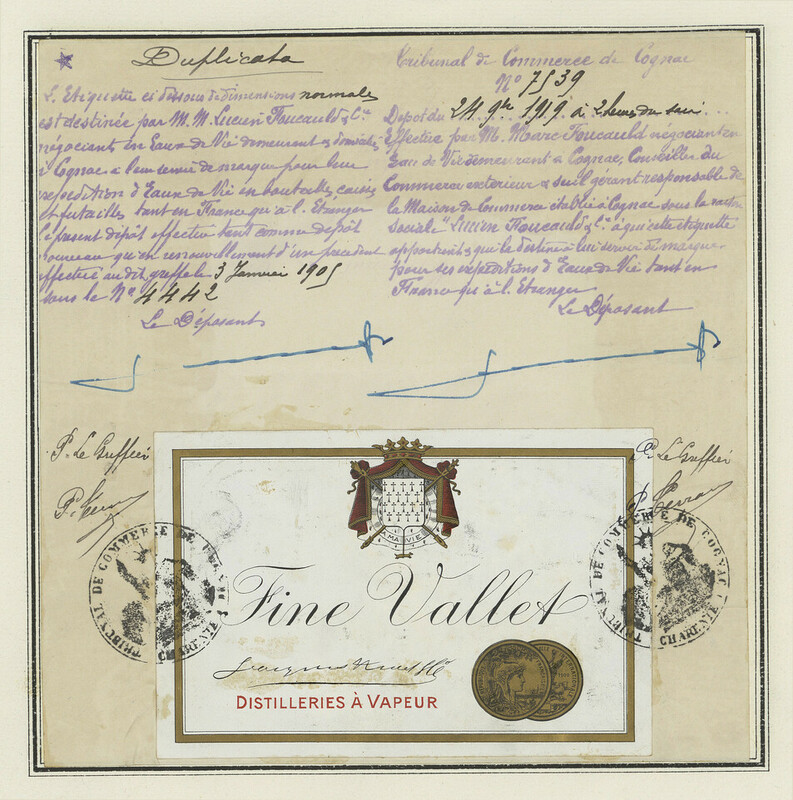 Duplicata
L'Etiquette ci dessous de dimensions normales
est destinée par M.M. Lucien Foucauld & Cie
négociants en Eaux de Vie demeurant & domiciliés
à Cognac a leur servir de marque pour leur
expédition d'Eaux de Vie en bouteilles, caisses
et futailles tant en France qu'à l'Etranger
le présent dépôt effectué tant comme dépôt
nouveau qu'en renouvellement d'un précédent
effectué au dit greffe le 3 Janvier 1905
sous le No 4442
Le Déposant
Tribunal de Commerce de Cognac
No 7539
Dépôt du 24 9bre 1919 à 2 heures du soir
Effectué par M. Marc Foucauld négociant en
Eau de Vie demeurant a Cognac, Conseiller du
Commerce extérieur & seul gérant responsable de
la Maison de Commerce établie à Cognac sous la raison
sociale Lucien Foucauld & Cie à qui cette étiquette
appartient & qui la destine à lui servir de marque
pour ses expéditions d'Eaux de Vie tant en
France qu'à l'Etranger
Le Déposant
P. Le Greffier
P. Le Greffier
TRIBUNAL DE COMMERCE DE COGNAC
CHARENTE
TRIBUNAL DE COMMERCE DE COGNAC
CHARENTE
A MA VIE
Fine Vallet
DISTILLERIES À VAPEUR